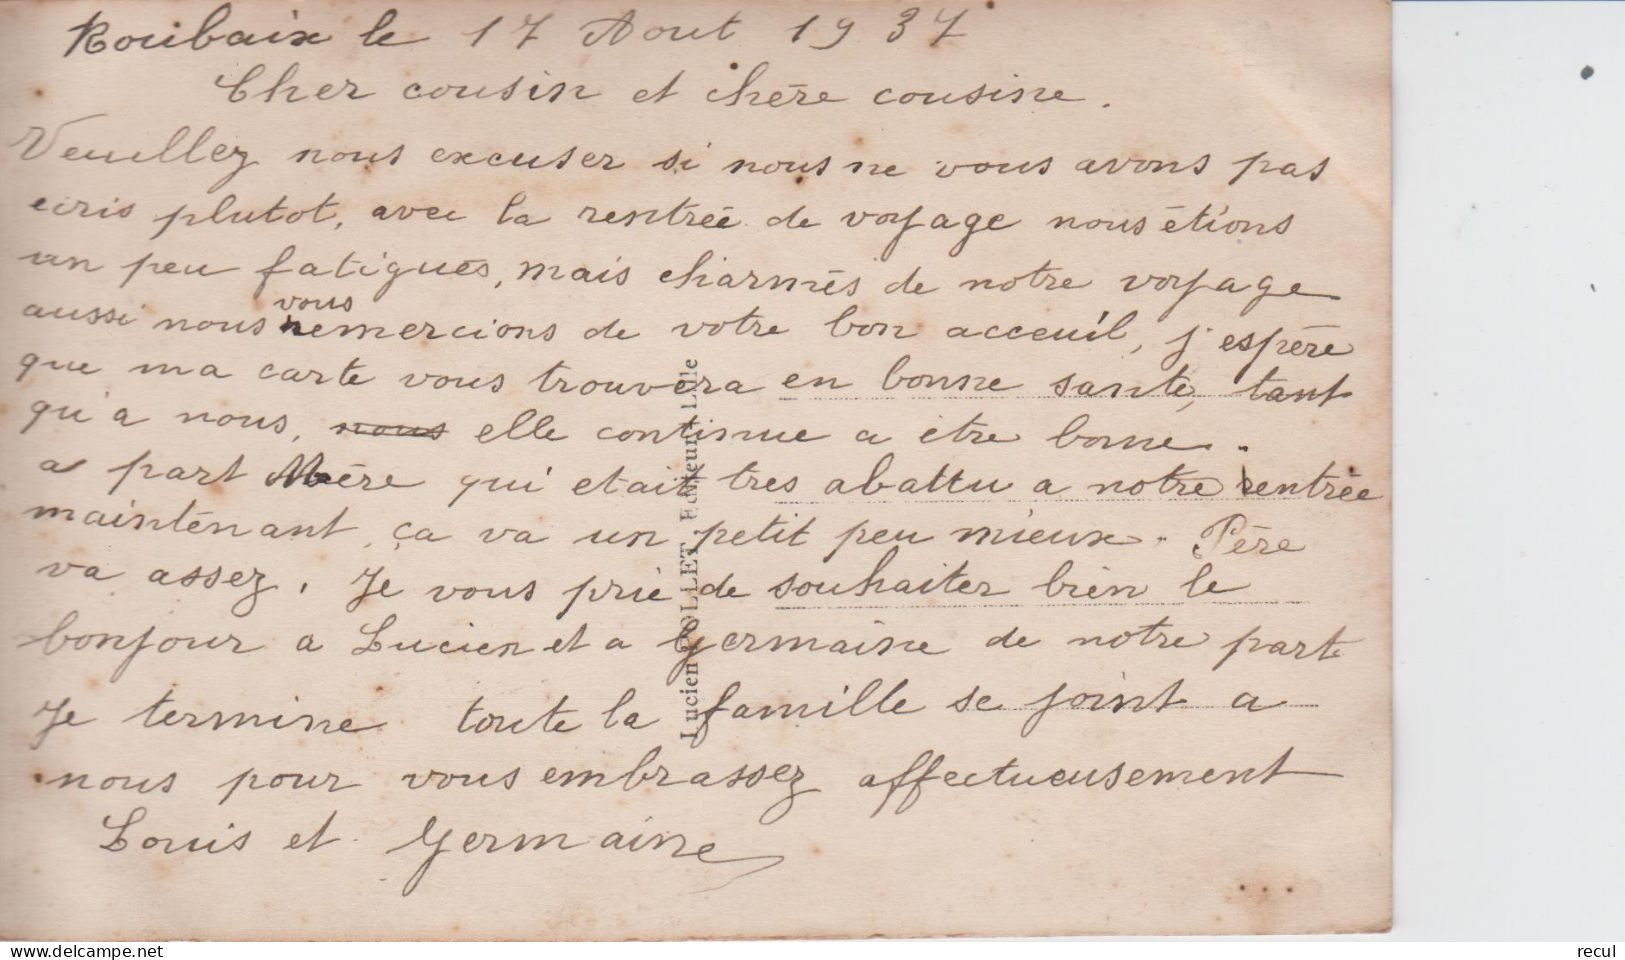 Roubaix le 17 Aout 1937
Cher cousin et chère cousine.
Veuillez nous excuser si nous ne vous avons pas
ecris plutot, avec la rentrée de voyage nous étions
un peu fatigués, mais charmés de notre voyage
aussi nous vous remercions de votre bon acceuil, j'espère
que ma carte vous trouvera en bonne santé, tant
qu'a nous, ~~nous~~ elle continue a être bonne.
a part Mère qui etait tres abattu a notre rentrée
maintenant, ça va un petit peu mieux. Père
va assez. Je vous prie de souhaiter bien le
bonjour a Lucien et a Germaine de notre part
Je termine toute la famille se joint a
nous pour vous embrassez affectueusement
Louis et Germaine
Lucien POLLET, Editeur, Lille
delcampe.net
recul